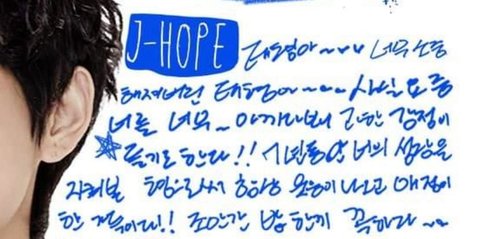 J-HOPE 태형아~~~ 너무 소중
해져버린 태형아~~~ 사실 요즘
너를 너무~ 아끼다보니 귀한 감정이
들기도 한다!! 7년동안 너의 성장을
지켜본 형으로써 항상 웃음이 나고 애정이
한 가득이다!! 조만간 밥 한끼 꼭하자~~